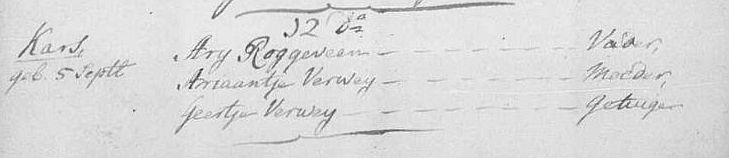 12 da
Kars, Ary Roggeveen — — — — — Vader,
geb. 5 Septt Ariaantje Verwey — — — — — Moeder,
Geertje Verwey — — — — — Getuige